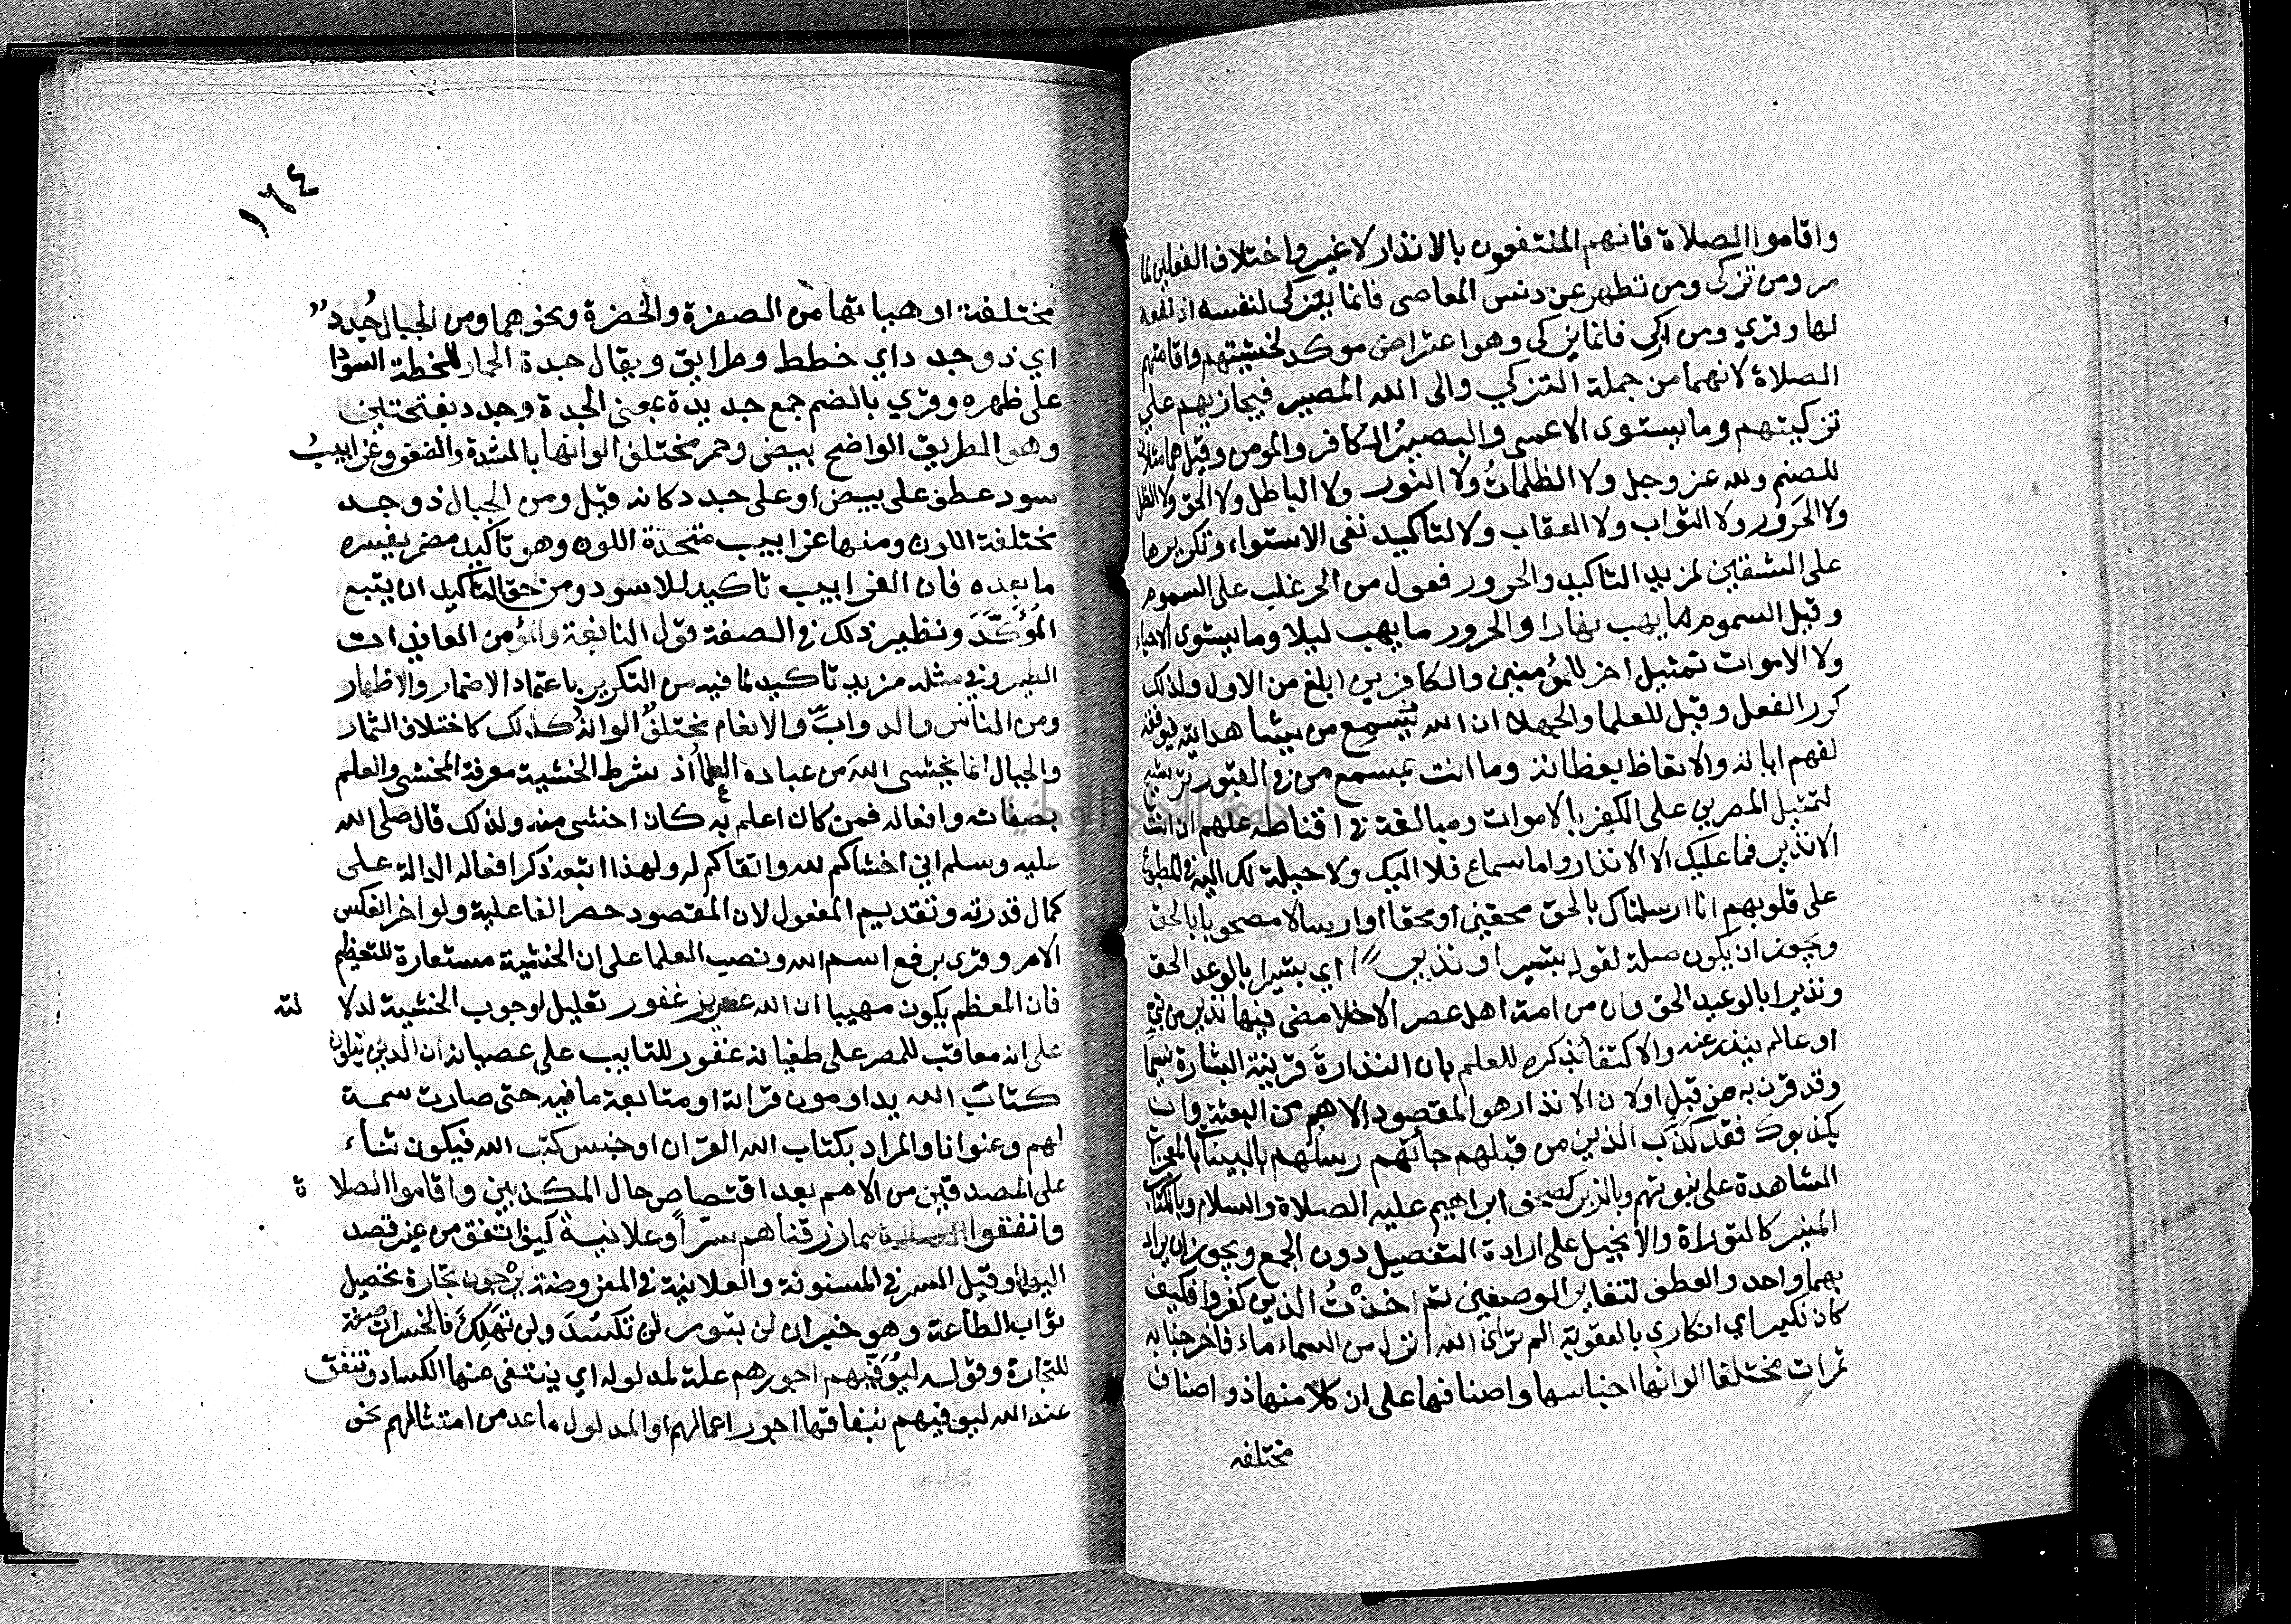 واقاموا الصلاة فانهم المنتفعون بالانذار لا غير واختلاف الفعلين لما
مر ومن تزكى ومن تطهر عن دنس المعاصى فانما يتزكى لنفسه اذ نفعه
لها وقري ومن ازكى فانما يزكى وهو اعتراض موكد لخشيتهم واقامتهم
الصلاة لانهما من جملة التزكي والى الله المصير فيجازيهم علي
تزكيتهم وما يستوى الاعمى والبصيرُ الكافر والمومن وقيل هما مثلان
للصنم ولله عز وجل ولا الظلماتُ ولا النور ولا الباطل ولا الحق ولا الظل
ولا الحَرور ولا الثواب ولا العقاب ولا لتاكيد نفى الاستواء وتكريرها
على الشقين لمزيد التاكيد والحرور فعول من الحر غلب على السموم
وقيل السموم ما يهب نهارا والحرور ما يهب ليلا وما يستوى الاحياء
ولا الاموات تمثيل اخر للمؤمنين والكافرين ابلغ من الاول ولذلك
كرر الفعل وقيل للعلما والجهلا ان الله يُسمِع من يشا هدايته فيوفقه
لفهم اياته والاتعاظ بعظاته وما انت بمسمع من في القبور ترشيح
لتمثيل المصرين على الكفر بالاموات ومبالغة في اقناطه عنهم ان انت
الا نذير فما عليك الا الانذار واما سماع فلا اليك ولا حيلة لك اليه في المطبوع
على قلوبهم انا ارسلناك بالحق محقين او محقا او ارسالا مصحوبا بالحق
ويجوز ان يكون صلة لقوله بشيرا ونذيرا اي بشيرا بالوعد الحق
ونذيرا بالوعيد الحق وان من امة اهل عصر الا خلا مضى فيها نذير من نبي
او عالم ينذر عنه والاكتفا بذكره للعلم بان النذارةَ قرينة البشارة سيما
وقد قرن به من قبل اولان الانذار هو المقصود الاهم من البعثة وان
يكذبوك فقد كذّب الذين من قبلهم جأتهم رسلُهم بالبينات بالمعجزات
المشاهدة على نبوتهم وبالزبر كصحف ابراهيم عليه الصلاة والسلام وبالكتاب
المنير كالتوراة والانجيل على ارادة التفصيل دون الجمع ويجوز ان يراد
بهما واحد والعطف لتغاير الوصفين ثم اخذْتُ الذين كفروا فكيف
كان نكير اي انكاري بالعقوبة الم تر ان الله انزل من السماء ماء فاخرجنا به
ثمرات مختلفا الوانها اجناسها واصنافها على ان كلا منها ذو اصناف
مختلفه
١٦٤
مختلفة او هياتها من الصفرة والخضرة ونحوهما ومن الجبال جُدد
اي ذو جدد اي خطط وطرايق ويقال جدة الحمار للخطة السودا
على ظهره وقري بالضم جمع جديدة بمعنى الجدة وجدد بفتحتين
وهو الطريق الواضح بيض وحمر مختلف الوانها بالشدة والضعف وغرابيبُ
سود عطف على بيض او على جدد كانه قيل ومن الجبال ذو جدد
مختلفة اللون ومنها غرابيب متحدة اللون وهو تاكيد مضمر يفسره
ما بعده فان الغرابيب تاكيد للاسود ومن حق التاكيد ان يتبع
المُؤَكَّدَ ونظير ذلك في الصفة قول النابغة والمؤمن العائذات
الطير وفي مثله مزيد تاكيد لما فيه من التكرير باعتماد الاضمار والاظهار
ومن الناس والدوابّ والانعام مختلفٌ الوانه كذلك كاختلاف الثمار
والجبال انما يخشى اللهَ من عباده العلماُ اذ شرط الخشية معرفة المخشى والعلم
بصفاته وافعاله فمن كان اعلم به كان اخشى منه ولذلك قال صلى الله
عليه وسلم اني اخشاكم لله واتقاكم له ولهذا اتبعه ذكر افعاله الدالة على
كمال قدرته وتقديم المفعول لان المقصود حصر الفاعلية ولو اخر انعكس
الامر وقرى برفع اسم الله ونصب العلما على ان الخشية مستعارة للتعظيم
فان المعظم يكون مهيبا ان الله عزيز غفور تعليل لوجوب الخشية لدلا لته
على انه معاقب للمصر على طغيانه غفور للتايب على عصيانه ان الذين يتلون
كتابَ الله يداومون قراته او متابعة ما فيه حتى صارت سمة
لهم وعنوانا والمراد بكتاب الله القران او جنس كتب الله فيكون ثناء
على المصدقين من الامم بعد اقتصاص حال المكذبين واقاموا الصلا ة
وانفقوا مما رزقناهم سرّاً وعلانيةً كيف اتفق من غير قصد
اليهما وقيل السر في المسنونة والعلانية في المفروضة يرْجون تجارة تحصيل
ثواب الطاعة وهو خبر ان لن تبور لن تكسُدَ ولن تهلك بالخسران صفة
للتجارة وقوله ليُوَفِّيَهم اجورهم علة لمدلوله اي ينتفى عنها الكساد وتنفق
عند الله ليوفيهم بنفاقها اجور اعمالهم او المدلول ما عد من امتثالهم نحو